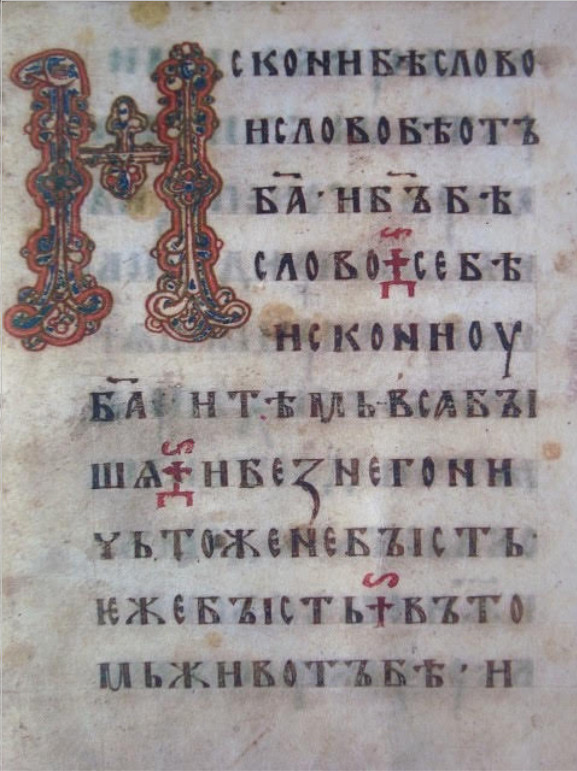 ИСКОНИБѢСЛОВО
ИСЛОВОБѢОТЪ
Б҃А·ИБ҃ЪБѢ
СЛОВО☦СЕБѢ
ИСКОНИОУ
Б҃А·ИТѢМЬВСѦБЪІ
ШѦ☦ИБЕЗНЕГОНИ
ЧЬТОЖЕНЕБЪІСТЬ·
ѤЖЕБЪІСТЬ†ВЪТО
МЬЖИВОТЪБѢ·И